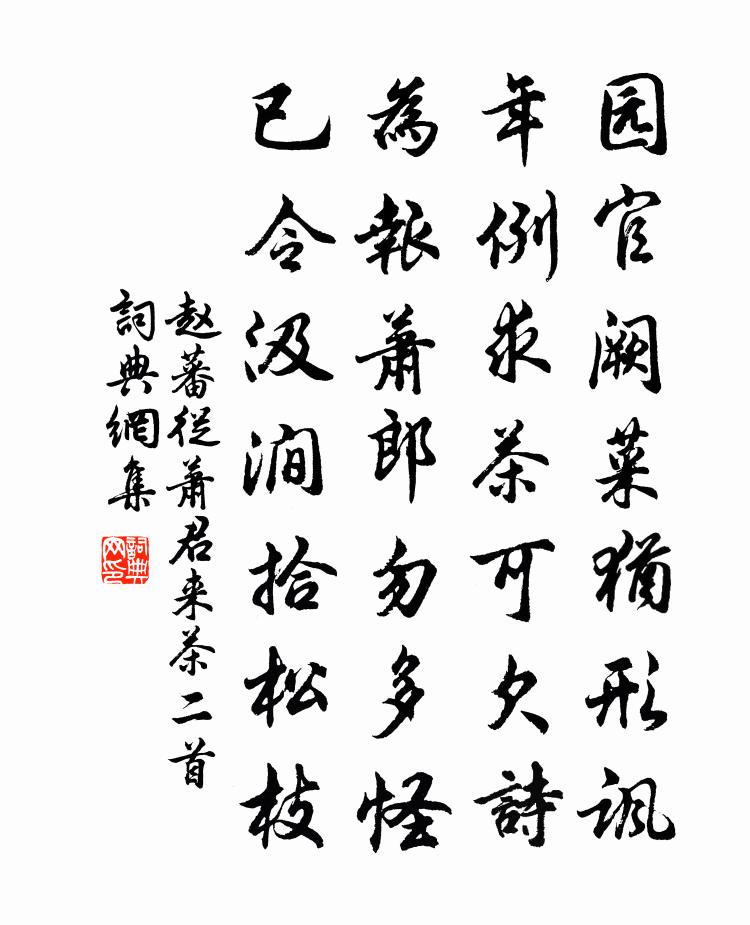 园官阙菜犹形讽
年例求茶可欠詩
為報蕭郎勿多怪
已令汲澗拾松枝
赵蕃從蕭君来茶二首
詞典網集
詞典网印